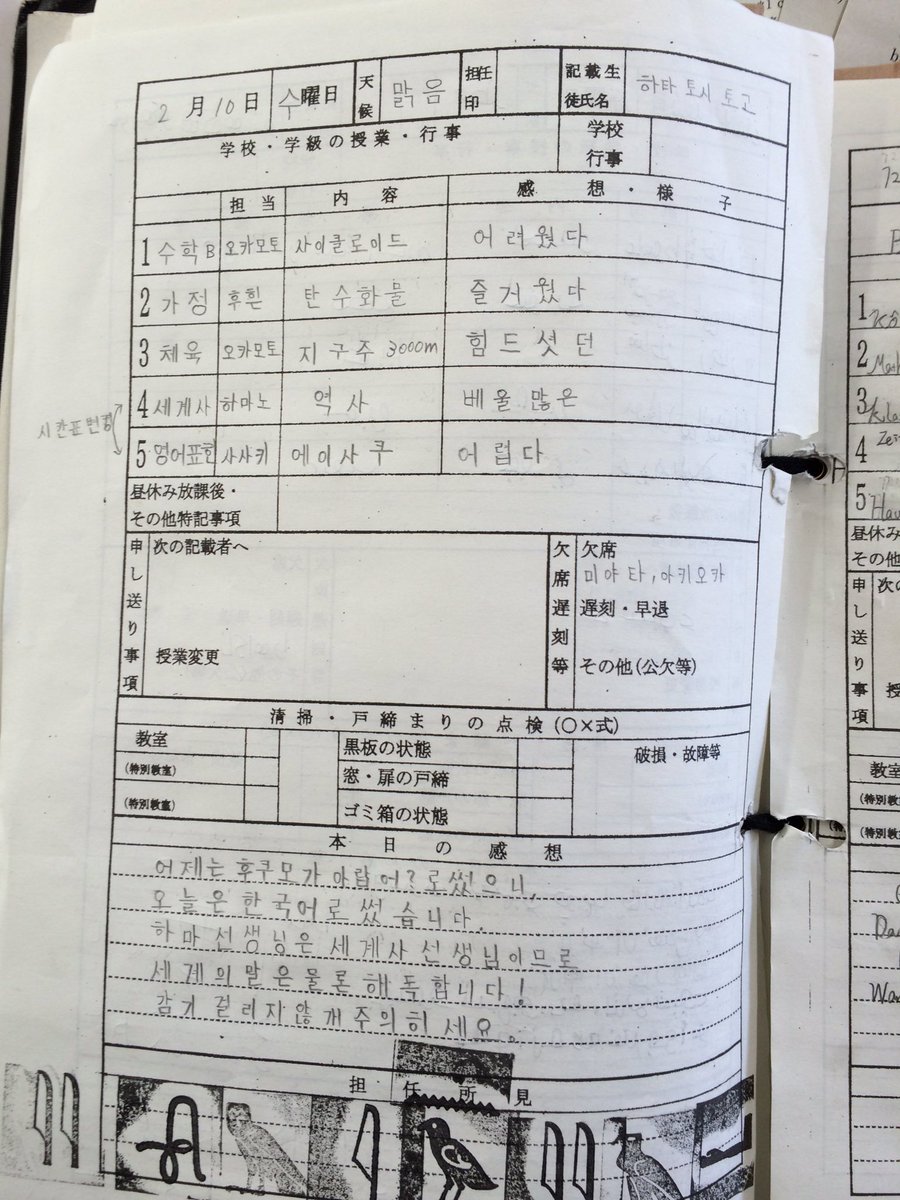 2月10日 수曜日 天候 맑음 担任印 記載生徒氏名 하타 토시 토고
学校・学級の授業・行事 学校行事
担当 内容 感想・様子
1 수학B 오카모토 사이클로이드 어려웠다
2 가정 후흰 탄수화물 즐거웠다
3 체육 오카모토 지구주 3000m 힘드셧던
4 세계사 하마노 역사 베울많은
5 영어표현 사사키 에이사쿠 어렵다
시칸표변경
昼休み放課後・
その他特記事項
申し送り事項 次の記載者へ
授業変更
欠席遅刻等 欠席
미야타, 아키오카
遅刻・早退
その他(公欠等)
清掃・戸締まりの点検(○×式)
教室 黒板の状態 破損・故障等
(特別教室) 窓・扉の戸締
(特別教室) ゴミ箱の状態
本日の感想
어제는후쿠모가아랍어?로썼으니,
오늘은한국어로썼습니다.
하마선생닝은세계사선생님이므로
세계의말은물론해독합니다!
감기걸리지않개주의히세요.
担任所見
1
2
3
4
5
昼休み
その他
申し送り事項 次の
授
教室
(特別教室)
(特別教室)